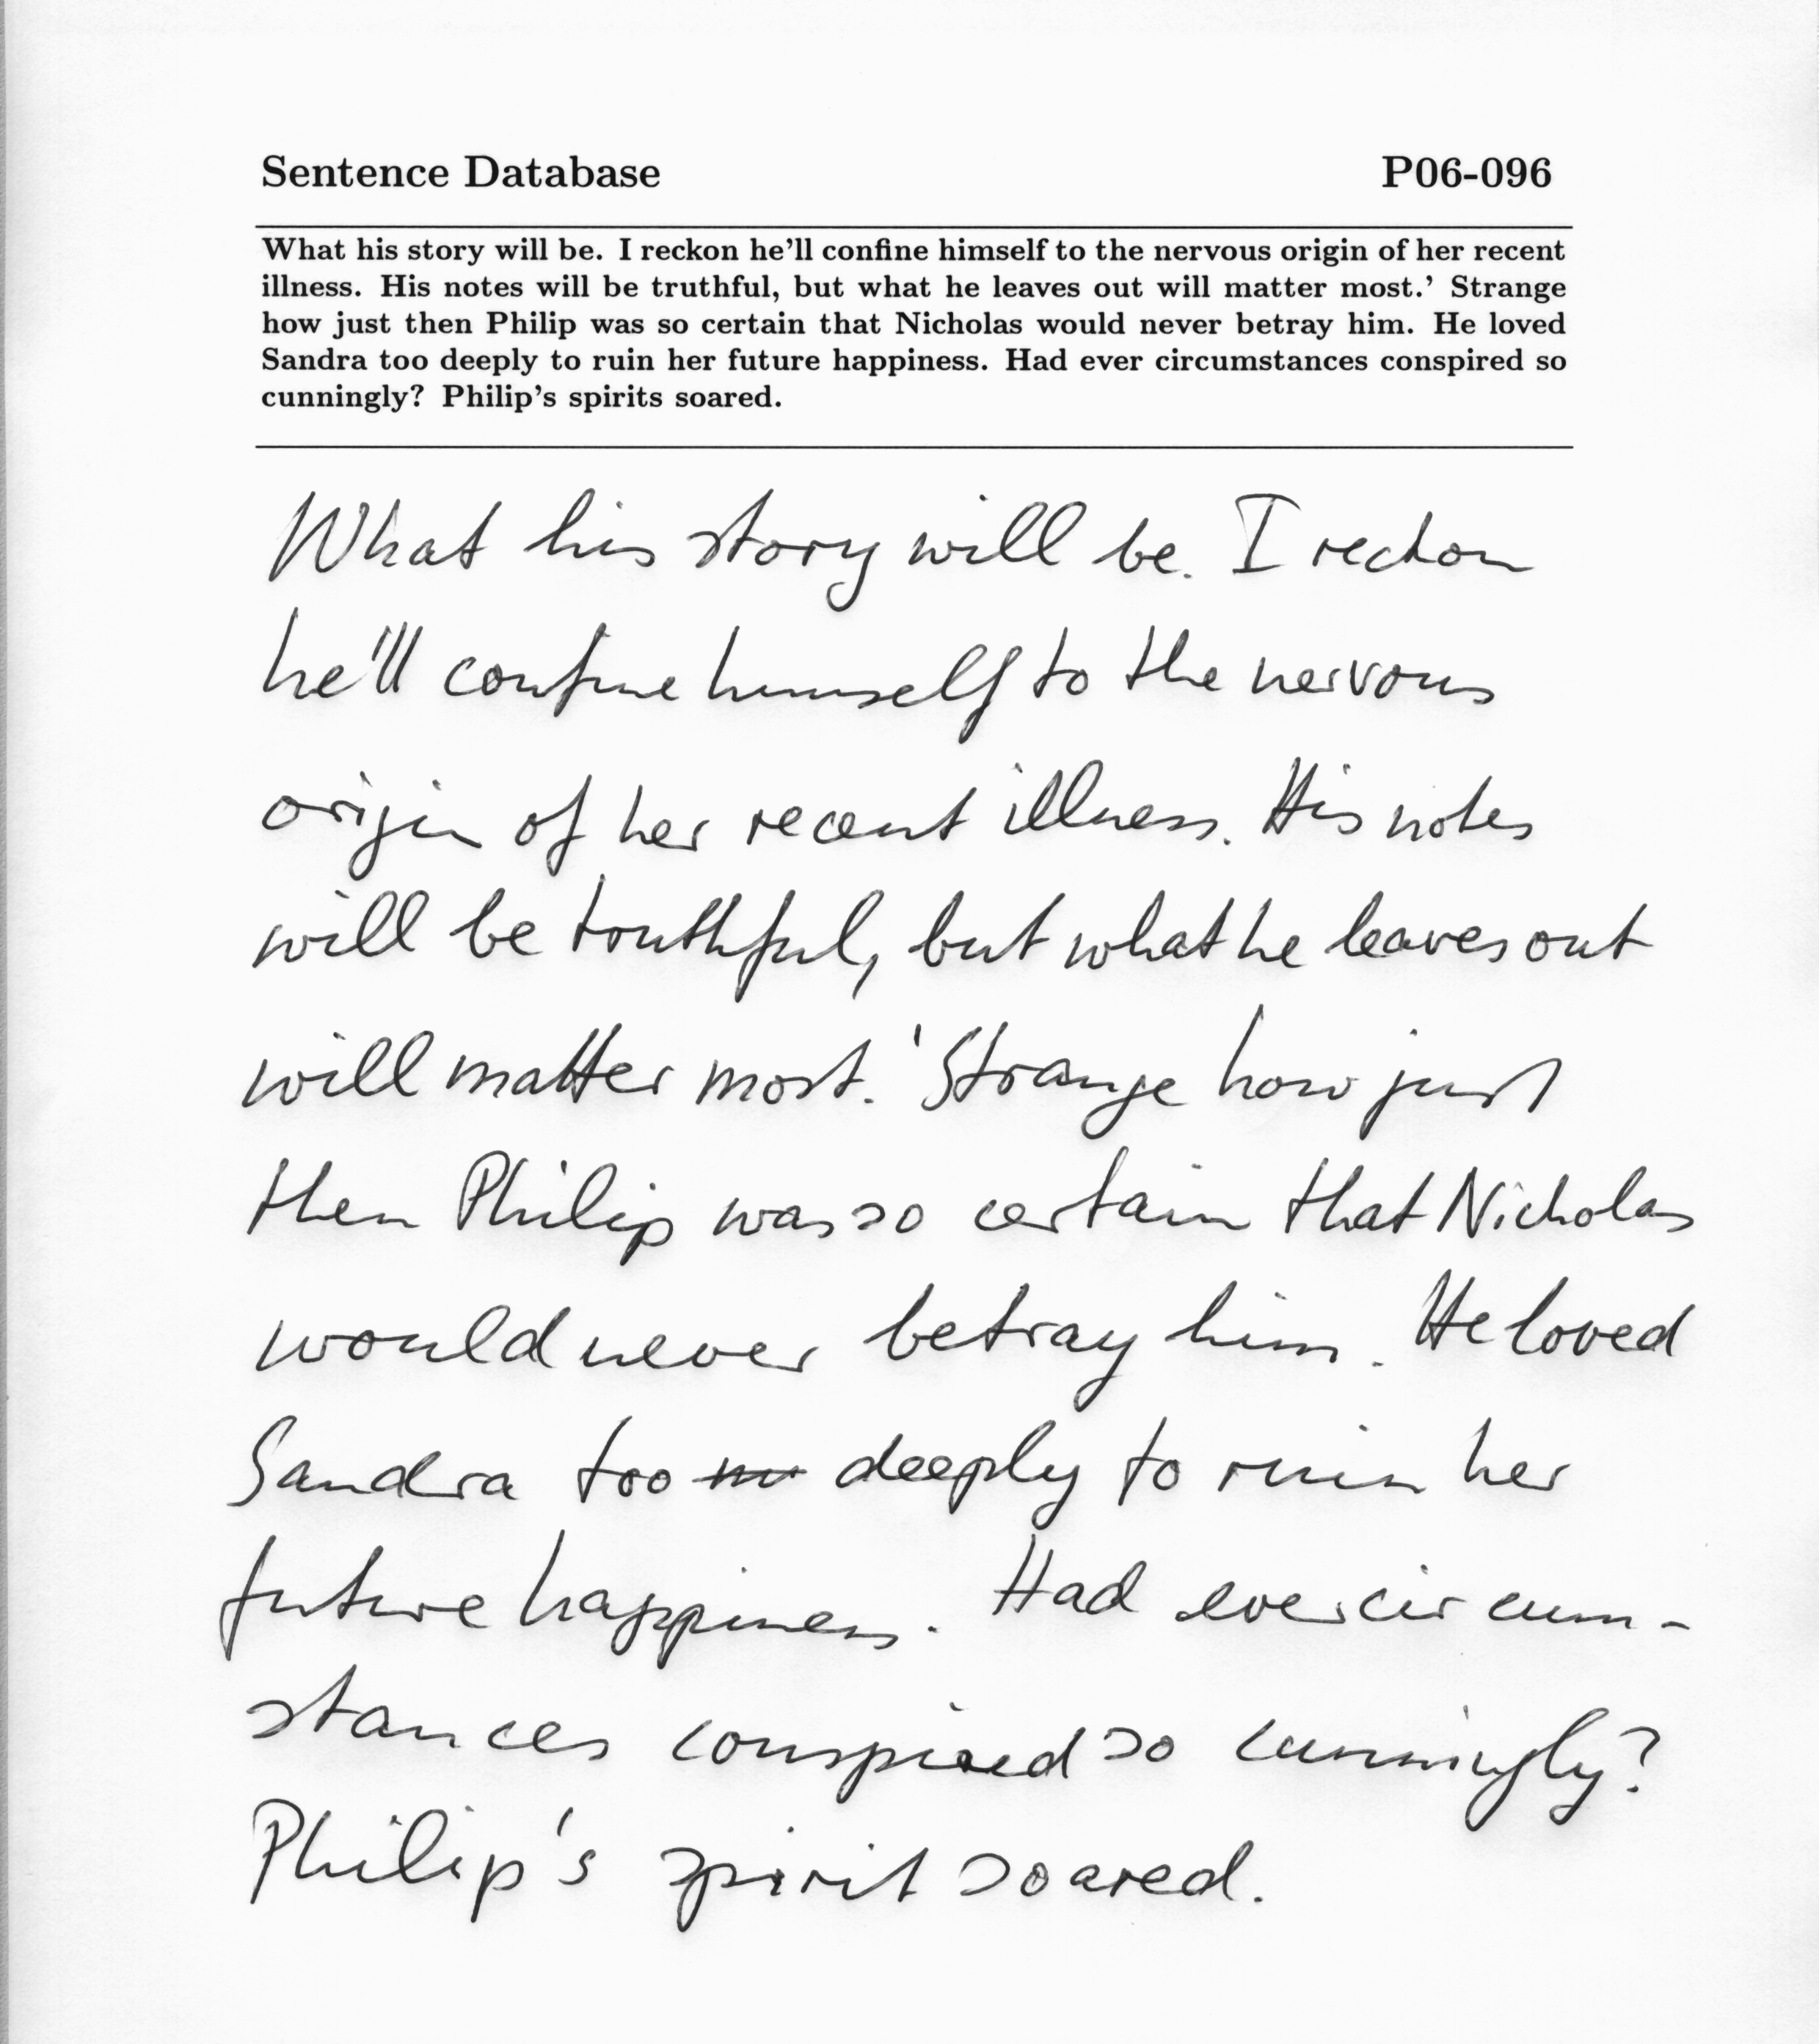 Sentence Database P06-096
What his story will be. I reckon he'll confine himself to the nervous origin of her recent
illness. His notes will be truthful, but what he leaves out will matter most.' Strange
how just then Philip was so certain that Nicholas would never betray him. He loved
Sandra too deeply to ruin her future happiness. Had ever circumstances conspired so
cunningly? Philip's spirits soared.
What his story will be. I reckon
he'll confine himself to the nervous
origin of her recent illness. His notes
will be truthful, but what he leaves out
will matter most.' Strange how just
then Philip was so certain that Nicholas
would never betray him. He loved
Sandra too deeply to ruin her
future happiness. Had ever circum-
stances conspired so cunningly?
Philip's spirit soared.